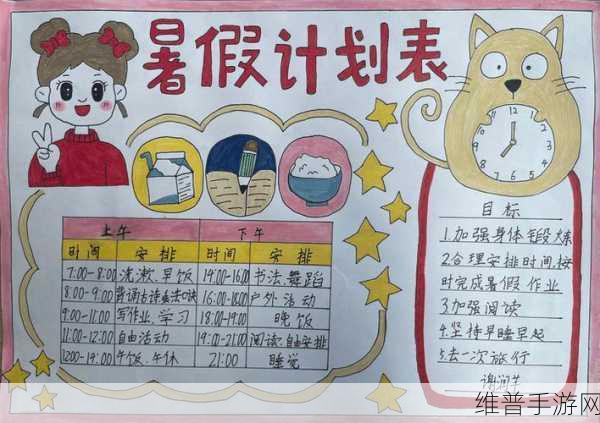 暑假计划表
上午 下午
时间 安排 时间 安排
7:00-8:00 洗漱.早饭 14:00-16:00 书法.舞蹈
8:00-9:00 背诵古诗 16:00-18:00 户外活动
9:00-11:00 写作业.学习 18:00-19:00 晚饭
11:00-12:00 自由活动 19:00-21:00 阅读.自由安排
12:00-14:00 午饭.午休 21:00 睡觉
目标
1.加强身体锻炼
2.合理安排时间,按
时完成暑假作业
3.加强阅读
4.坚持早睡早起
5.去一次旅行
谢润芊
维普手游网